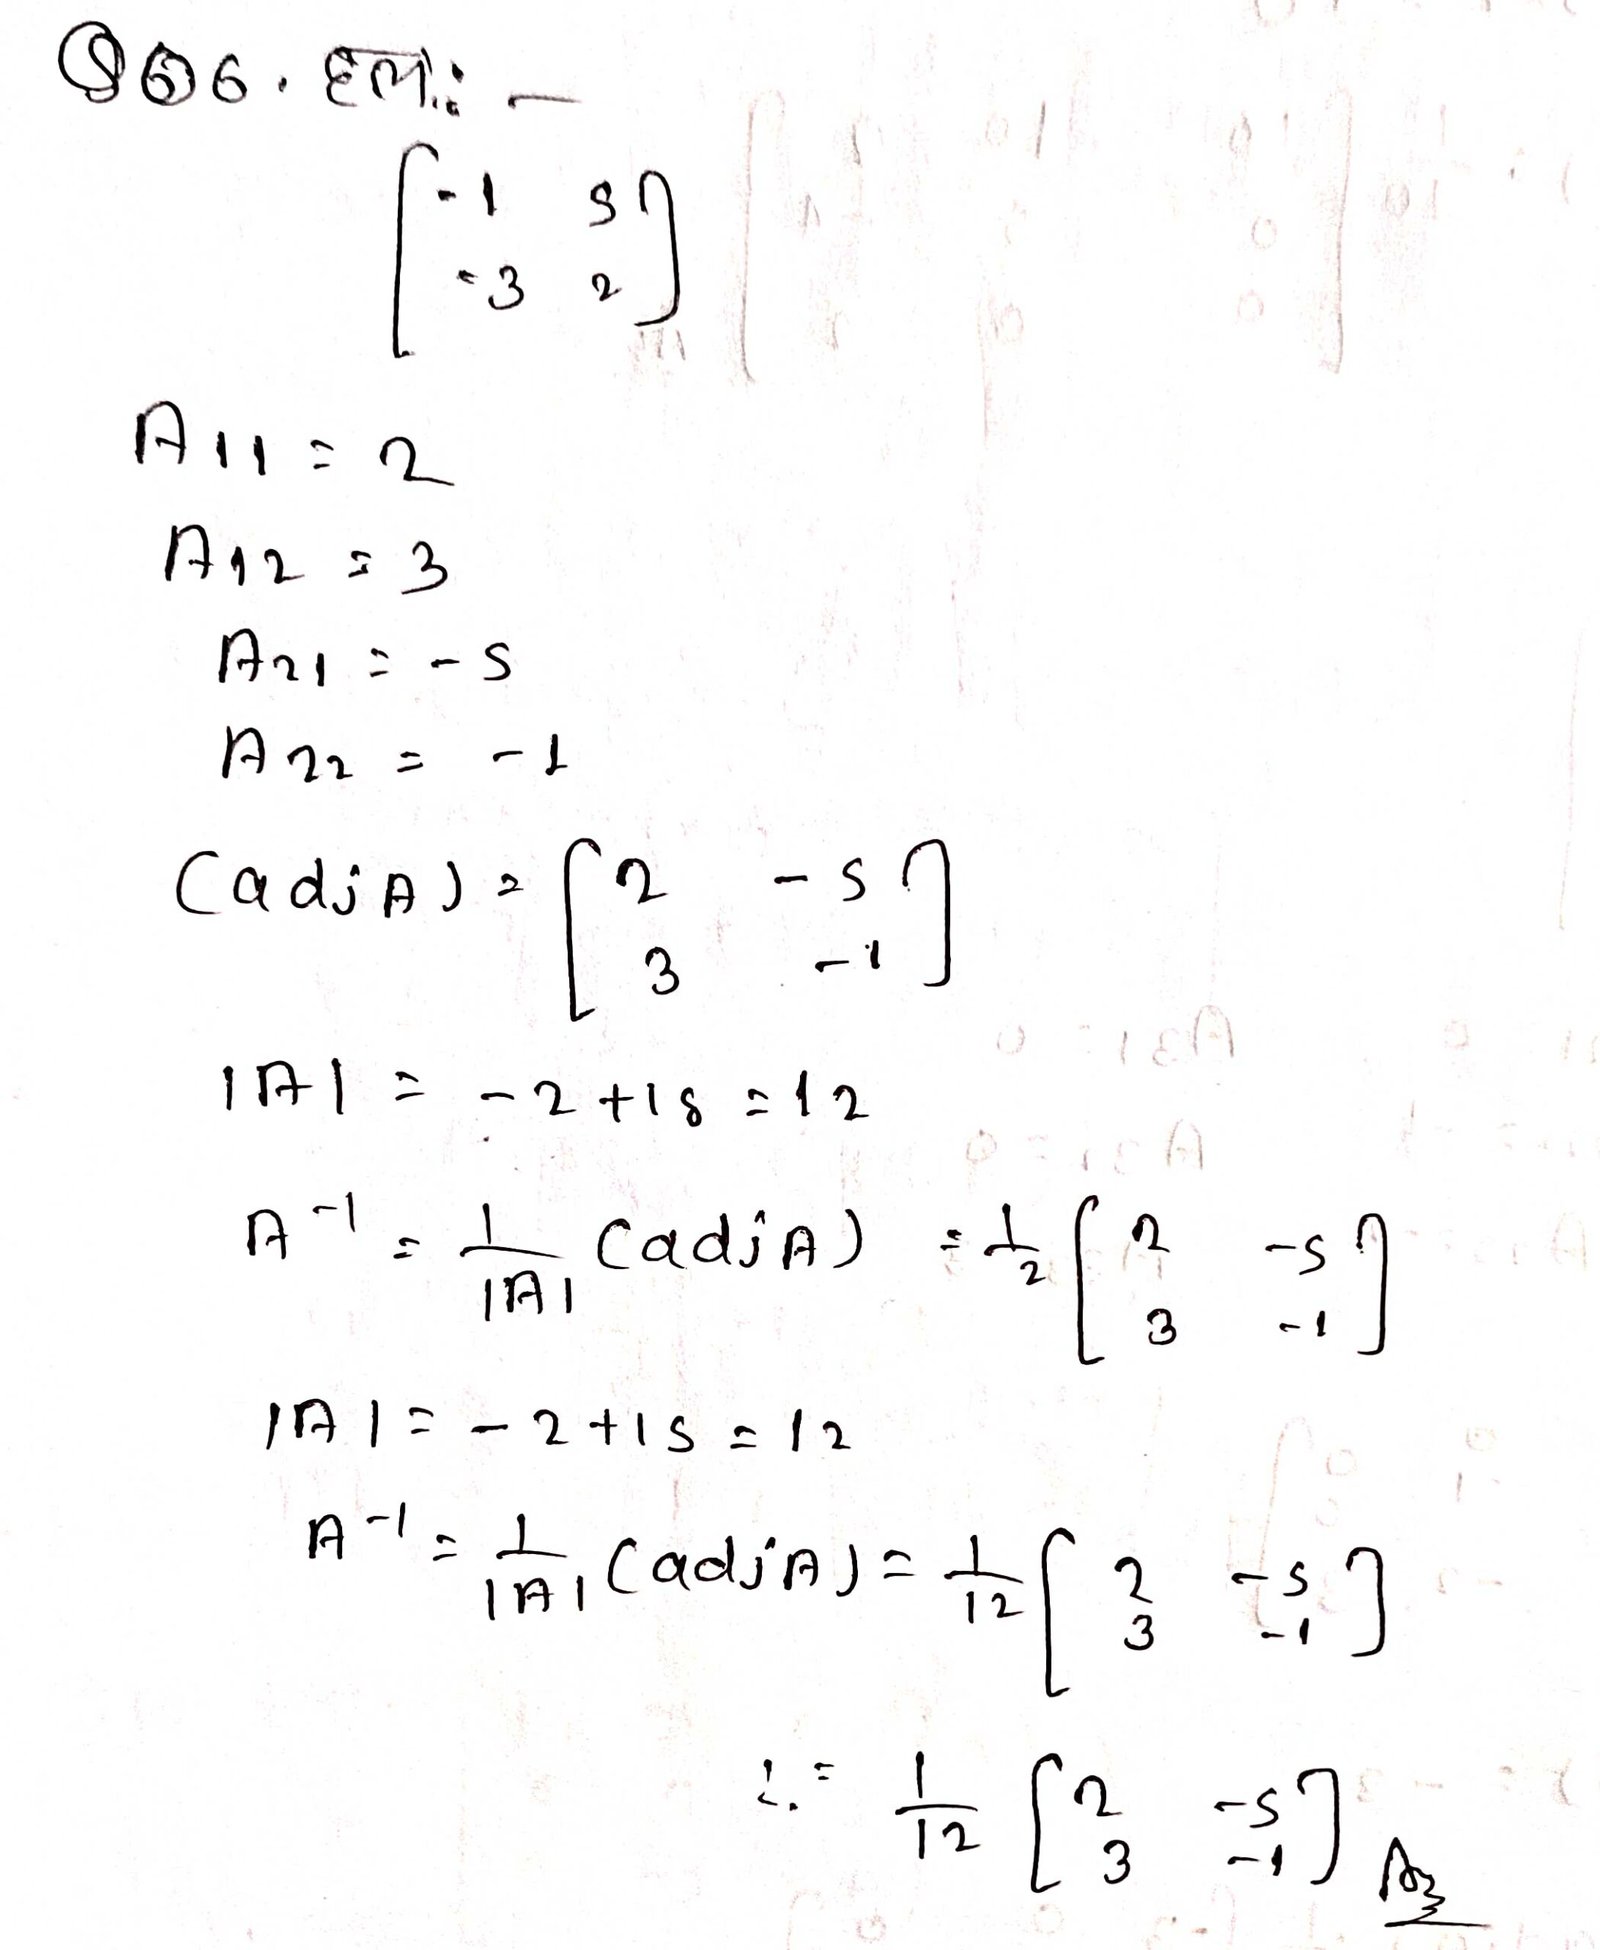 Q 6. हल: -
[ -1 5
-3 2 ]
A11 = 2
A12 = 3
A21 = -5
A22 = -1
(adj A) = [ 2 -5
3 -1 ]
|A| = -2 +15 = 12
A^-1 = 1/|A| (adj A) = 1/2 [ 2 -5
3 -1 ]
|A| = -2 +15 = 12
A^-1 = 1/|A| (adj A) = 1/12 [ 2 -5
3 -1 ]
= 1/12 [ 2 -5
3 -1 ] Ans